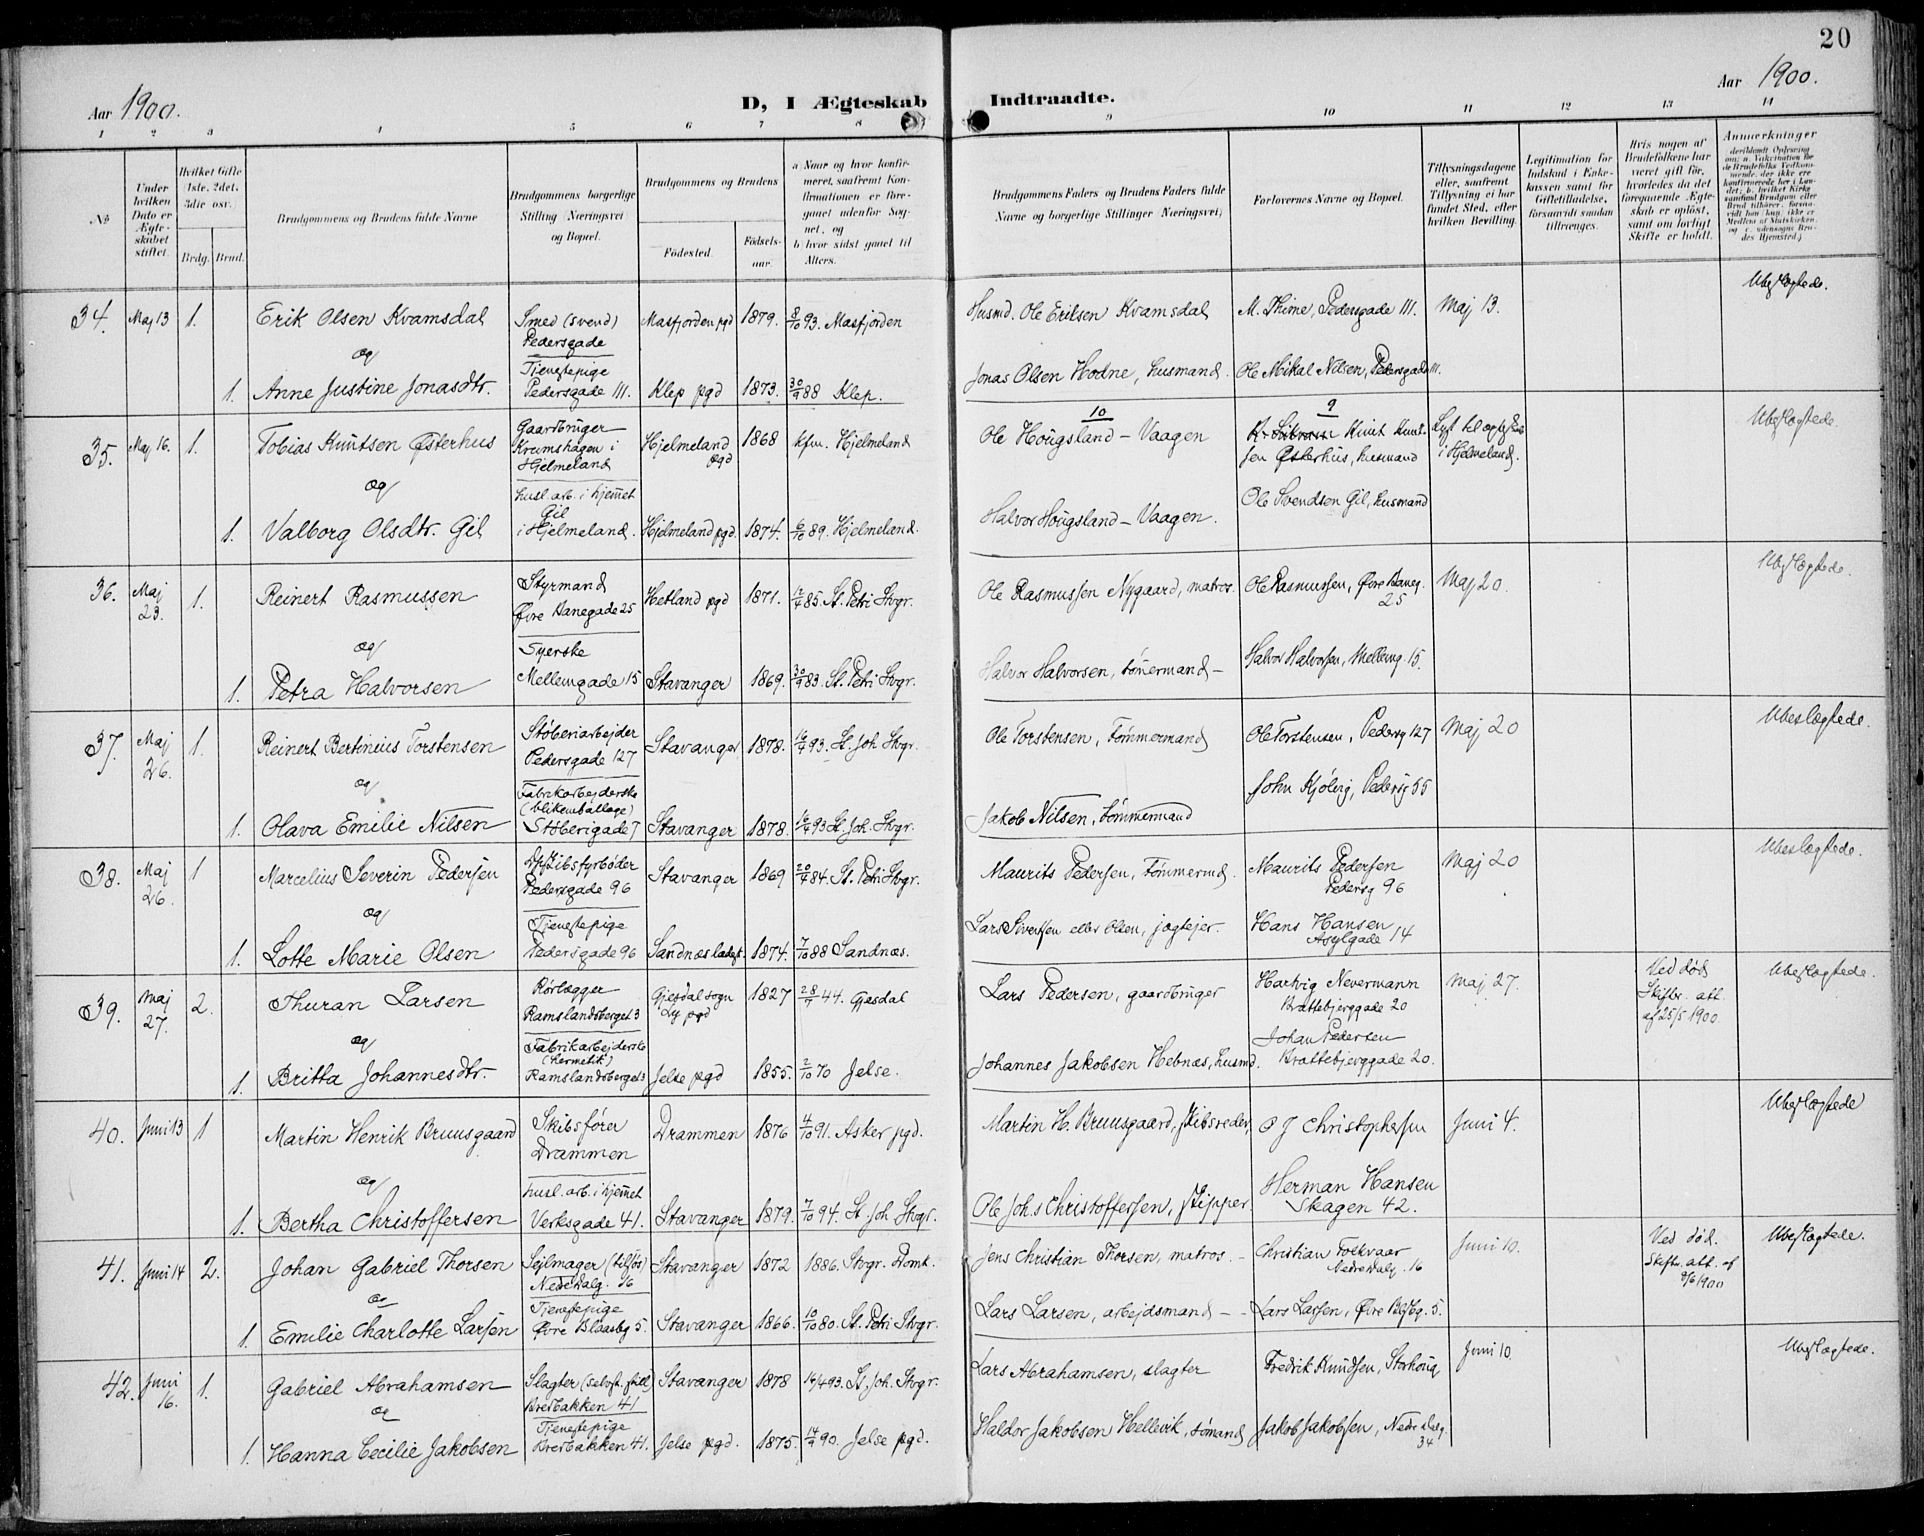 20
Aar 1900.
D, I Ægteskab Indtraadte.
Aar 1900.
1 2 3 4 5 6 7 8 9 10 11 12 13 14
No
Under hvilken Dato er Ægteskabet stiftet.
Hvilket Gifte 1ste, 2det, 3die osv.
Brdg. Brud.
Brudgommens og Brudens fulde Navne
Brudgommens borgerlige Stilling Næringsvei og Bopæl.
Brudgommens og Brudens
Födested.
Födselsaar.
a Naar og hvor konfirmeret, saafremt Konfirmationen er foregaaet udenfor Sognet, og
b hvor sidst gaaet til Alters.
Brudgommens Faders og Brudens Faders fulde Navne og borgerlige Stillinger Næringsvei;
Forlovernes Navne og Bopæl.
Tillysningsdagene eller, saafremt Tillysning ei har fundet Sted, efter hvilken Bevilling.
Legitimation for Indskud i Enkekassen samt for Giftetilladelse, forsaavidt saadan tiltrænges.
Hvis nogen af Brudefolkene har været gift før, hvorledes da det foregaaende Ægteskab er oplöst, samt om lovligt Skifte er holdt.
Anmærkninger
34. Maj 13 1. Erik Olsen Kvamsdal Smed (svend) Pedersgade Masfjorden pgd 1879. 8/10 93. Masfjorden Husmd. Ole Eriksen Kvamsdal M. Thime, Pedersgade 111. Maj 13. Ubeslægtede.
og
1. Anne Justine Jonasdtr. Tjenestepige Pedersgade 111. Klep pgd 1873. 30/9 88 Klep. Jonas Olsen Hodne, husmand. Ole Mikal Nilsen, Pedersgade 111.
35. Maj 16. 1. Tobias Knutsen Østerhus Gaardbruger Krumshagen i Hjelmeland Hjelmeland pgd 1868 kfm. Hjelmeland 10 Ole Hougsland - Vaagen 9 Knut Knutsen Østerhus, husmand Lyst til ægtesk. i Hjelmeland. Ubeslægtede.
og
1. Valborg Olsdtr. Gil husl. arb. i hjemet Gil i Hjelmeland. Hjelmeland pgd. 1874. 6/10 89. Hjelmeland. Halvor Hougsland - Vaagen. Ole Svendsen Gil, husmand
36. Maj 23. 1. Reinert Rasmussen Styrmand Øvre Banegade 25 Hetland pgd 1871. 12/4 85. St. Petri Stvgr. Ole Rasmussen Nygaard, matros. Ole Rasmussen, Øvre Baneg. 25 Maj 20. Ubeslægtede.
og
1. Petra Halvorsen Syerske Mellemgade 15 Stavanger 1869. 30/9 83. St. Petri Stvgr. Halvor Halvorsen, tømermand - Halvor Halvorsen, Mellemg. 15.
37. Maj 26. 1. Reinert Bertinius Torstensen Støberiarbejder Pedersgade 127 Stavanger 1878. 16/4 93. St. Joh Stvgr. Ole Torstensen, Tømmermand Ole Torstensen, Pedersg 127 Maj 20 Ubeslægtede.
og
1. Olava Emilie Nilsen Fabrikarbejderske (blikemballage) Støberigade 7 Stavanger 1878. 16/4 93 St. Joh. Stvgr. Jakob Nilsen, tømmermand John Kjølvig, Pedersg 55
38. Maj 26. 1 Marcelius Severin Pedersen Dpskibsfyrbøder Pedersgade 96 Stavanger 1869 20/4 84. St. Petri Stvgr. Maurits Pedersen, tømmermd. Maurits Pedersen Pedersg 96 Maj 20 Ubeslægtede.
og
1. Lotte Marie Olsen Tjenestepige Pedersgade 96 Sandnæs ladest 1874. 7/10 88 Sandnæs. Lars Sivertsen eller Olsen, jægtejer. Hans Hansen Asylgade 14
39. Maj 27. 2. Thuran Larsen Rørlægger Ramslandsberget 3 Gjesdal sogn Ly pgd 1827 28/9 44. Gjesdal Lars Pedersen, gaardbruger Hartvig Nevermann Brattebjerggade 20 Maj 27. Ved død Skiftbr. att. af 25/5 1900. Ubeslægtede.
og
1. Britta Johannesdtr. Fabrikarbejderske (hermetik) Ramslandsberget 3 Jelse pgd 1855. 2/10 70 Jelse. Johannes Jakobsen Hebnæs, husmd. Johan Pedersen Brattebjerggade 20.
40. Juni 13 1 Martin Henrik Bruusgaard Skibsfører Drammen Drammen 1876 4/10 91. Asker pgd. Martin H. Bruusgaard, skibsreder, O J Christophersen Juni 4. Ubeslægtede
og
1. Bertha Christoffersen husl. arb. i hjemet Verksgade 41. Stavanger 1879. 7/10 94. St. Joh Stvgr. Ole Johs Christoffersen, skipper. Herman Hansen Skagen 42.
41. Juni 14 2. Johan Gabriel Thorsen Sejlmager (tilsjøs) Nedre Dalg. 16 Stavanger 1872 1886. Stvgr. Domk. Jens Christian Thorsen, matros. - Christian Folkvaar Nedre Dalg. 16 Juni 10. Ved død. Skiftr. att. af 9/6 1900 Ubeslægtede.
og
1. Emilie Charlotte Larsen Tjenestepige Øvre Blaasbg 5. Stavanger 1866. 10/10 80. St. Petri Stvgr. Lars Larsen, arbejdsmand - - Lars Larsen, Øvre Blsbg. 5.
42. Juni 16. 1. Gabriel Abrahamsen Slagter (selvst. still) Kverbakken 41 Stavanger 1878 16/4 93. St. Joh. Stvgr. Lars Abrahamsen, slagter Fredrik Knudsen, Storhoug Juni 10. Ubeslægtede.
og
1. Hanna Cecilie Jakobsen Tjenestepige Kverbakken 41. Jelse pgd. 1875. 14/9 90. Jelse pgd. Haldor Jakobsen Hellevik, sømand Jakob Jakobsen, Nedre Dalg. 34